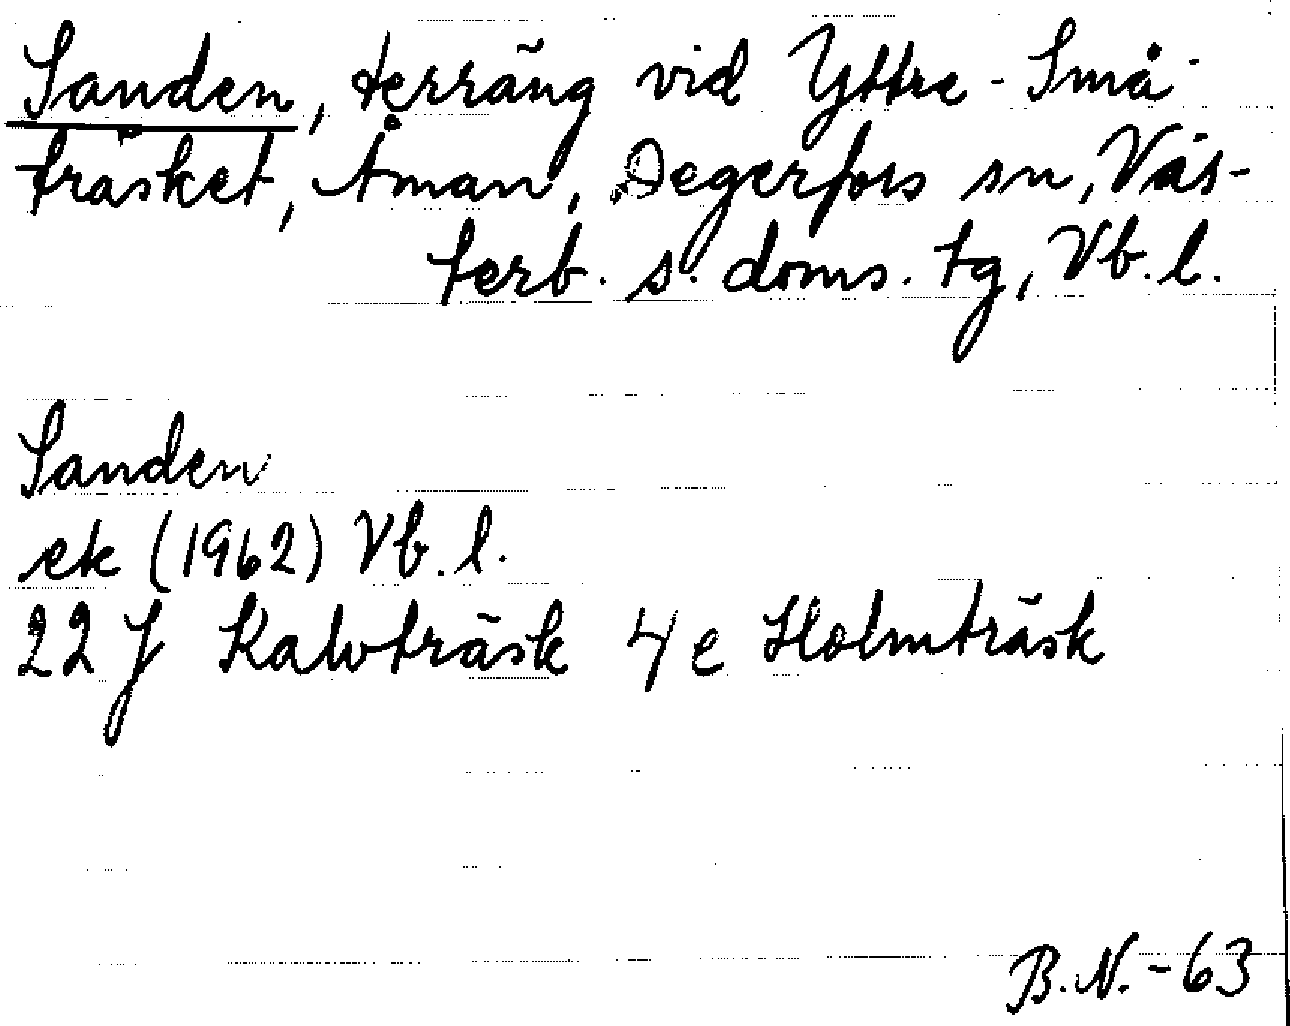 Sanden, terräng vid Yttre-Små-
träsket, Åman, Degerfors sn, Väs-
terb. s. doms. tg, Vb. l.
Sanden
ek (1962) Vb. l.
22 J Kalvträsk 4 e Holmträsk
B.N. -63